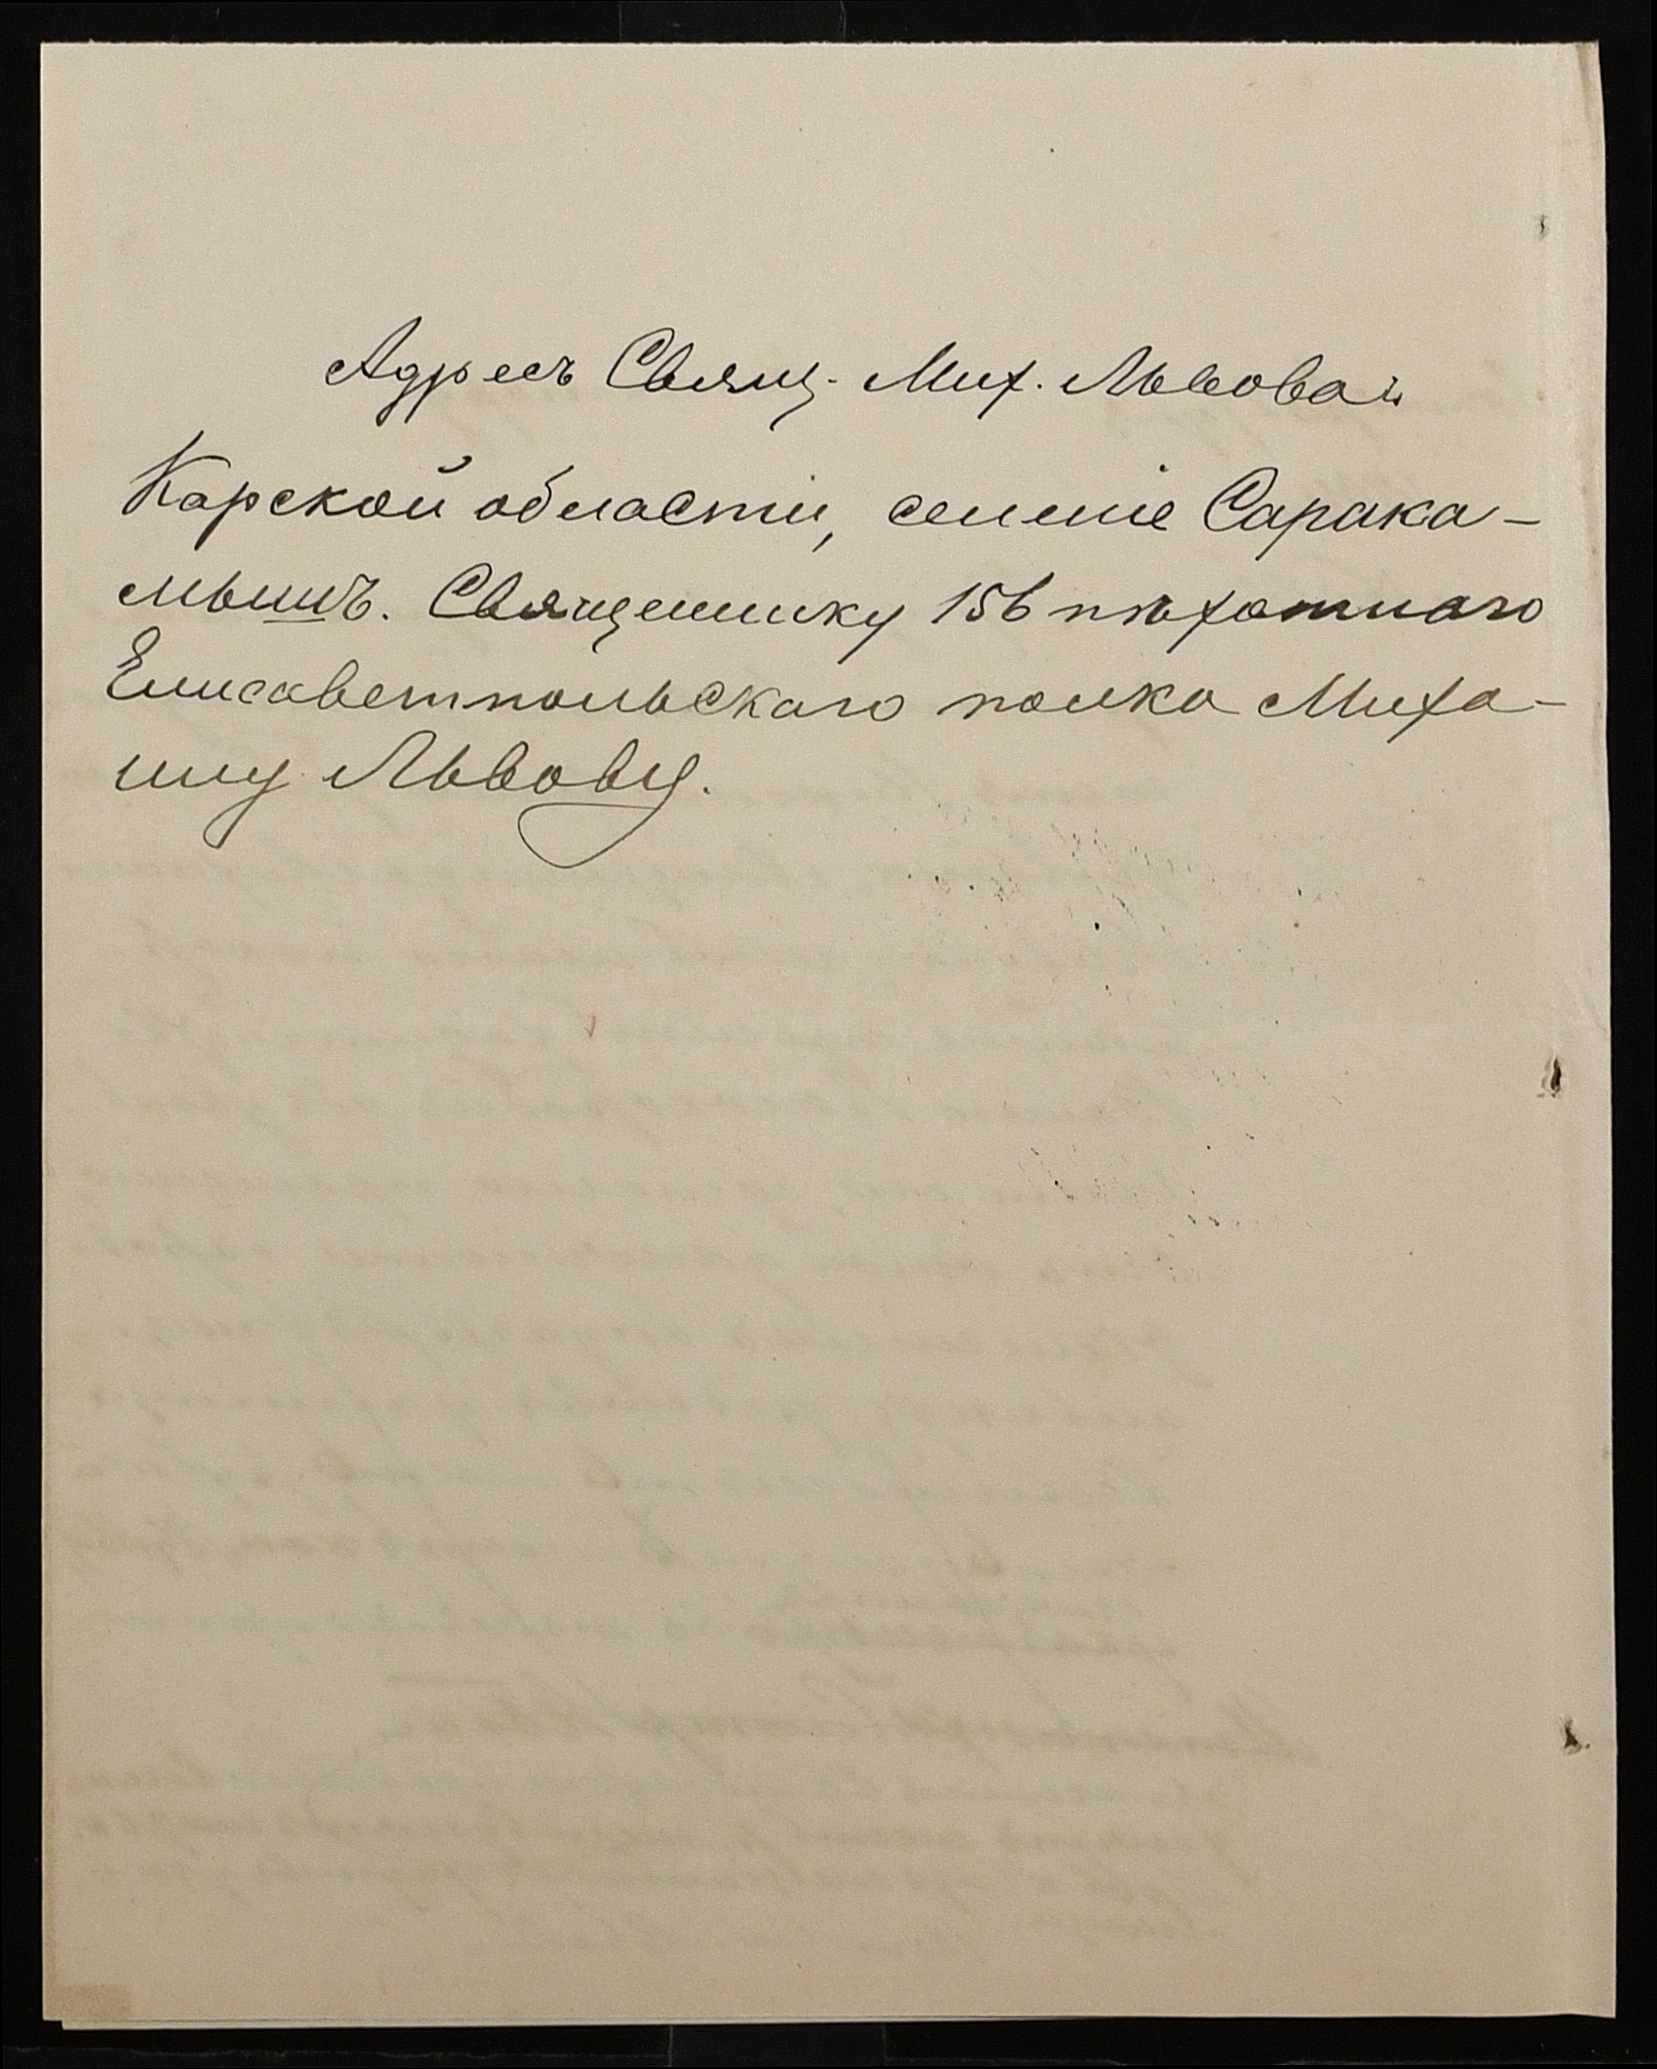 Адресъ Свящ. Мих. Львова:
Карской области, селеніе Сарака-
мышъ. Священнику 156 пѣхотнаго
Елисаветпольскаго полка Миха-
илу Львову.